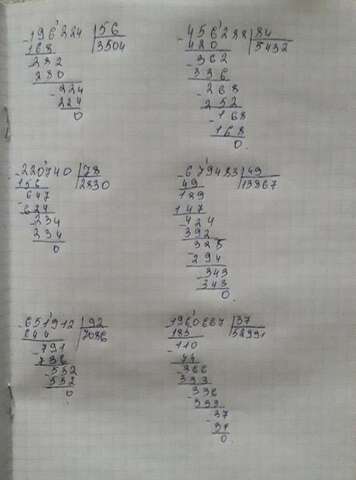 -196224 | 56
168 | 3504
-282
280
-224
224
0
-456288 | 84
420 | 5432
-362
336
-268
252
-168
168
0
-220740 | 78
156 | 2830
-647
624
-234
234
0
-679483 | 49
49 | 13867
189
147
-424
392
-328
294
-343
343
0
-651912 | 92
644 | 7086
-791
736
-552
552
0
-1960667 | 37
185 | 52991
-110
74
-366
333
-336
333
-37
37
0